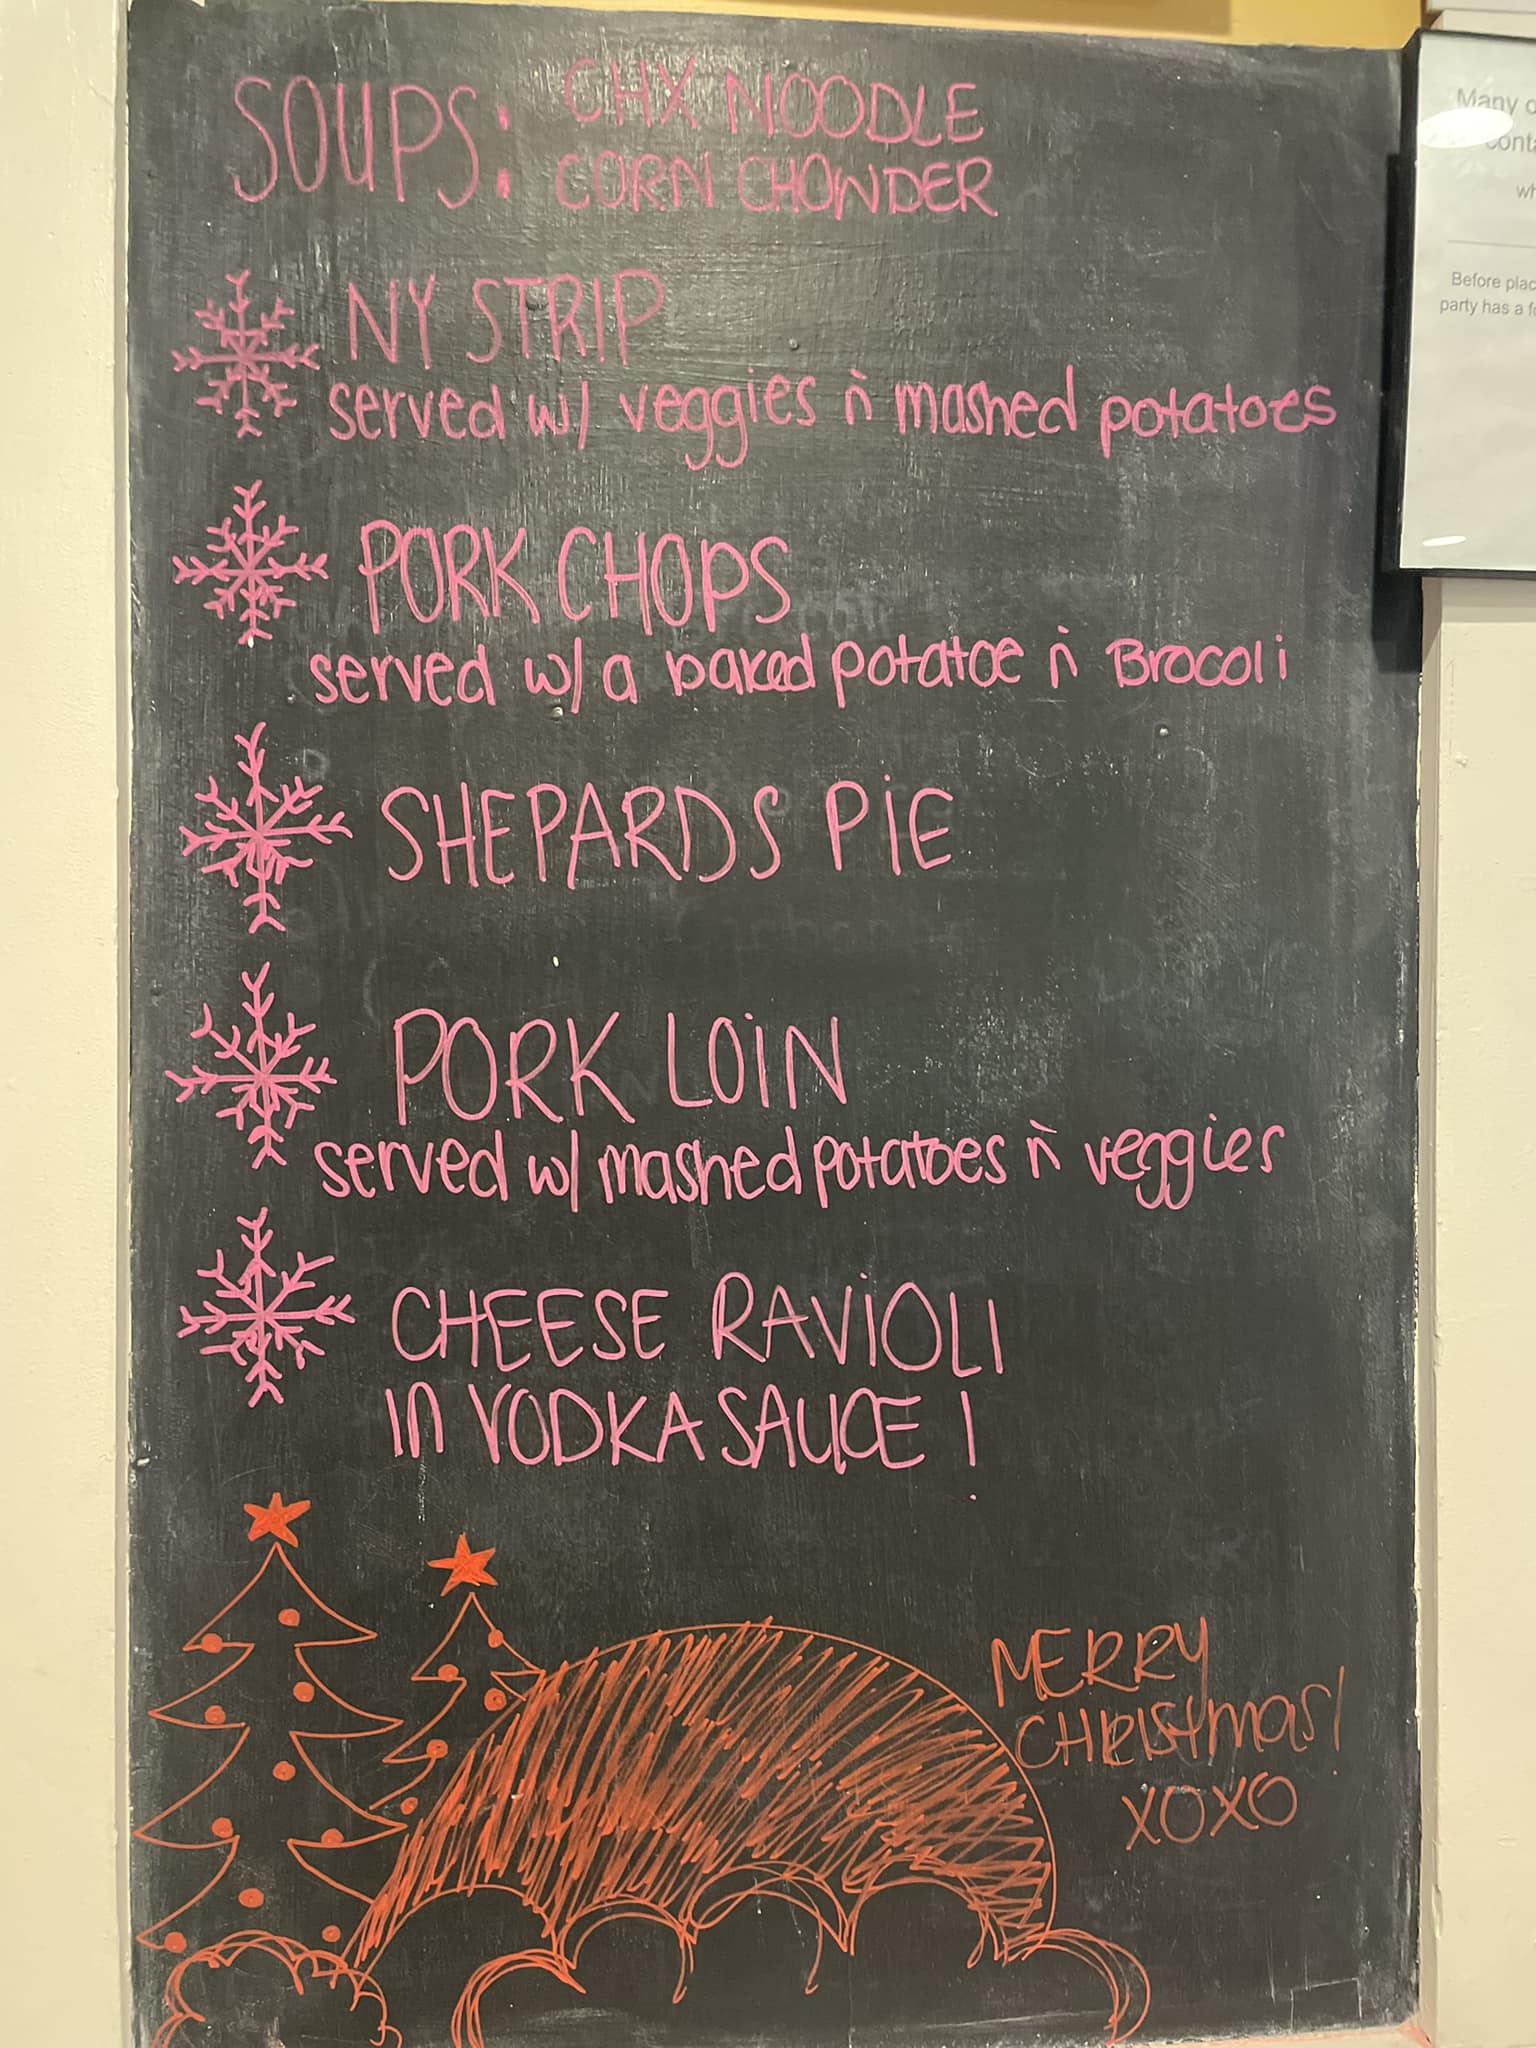 SOUPS: CHX NOODLE
CORN CHOWDER
NY STRIP
served w/ veggies ǹ mashed potatoes
PORK CHOPS
served w/ a baked potatoe ǹ Brocoli
SHEPARDS PIE
PORK LOIN
served w/ mashed potatoes ǹ veggies
CHEESE RAVIOLI
IN VODKA SAUCE!
MERRY
CHRISTMAS!
XOXO
Many
Before
party has a